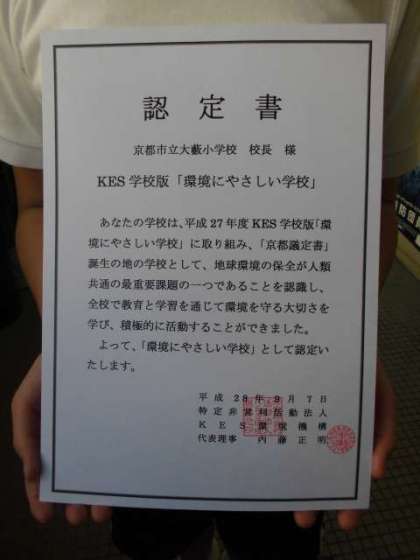 認定書
京都市立大藪小学校 校長 様
KES 学校版「環境にやさしい学校」
あなたの学校は、平成 27 年度 KES 学校版「環
境にやさしい学校」に取り組み、「京都議定書」
誕生の地の学校として、地球環境の保全が人類
共通の最重要課題の一つであることを認識し、
全校で教育と学習を通じて環境を守る大切さを
学び、積極的に活動することができました。
よって、「環境にやさしい学校」として認定い
たします。
平成 28 年 9 月 7 日
特定非営利活動法人
KES 環境機構
代表理事 内藤正明